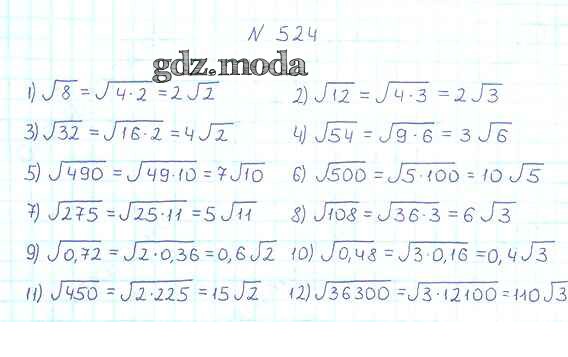 N 524
gdz.moda
1) √8 = √4·2 = 2√2 2) √12 = √4·3 = 2√3
3) √32 = √16·2 = 4√2 4) √54 = √9·6 = 3√6
5) √490 = √49·10 = 7√10 6) √500 = √5·100 = 10√5
7) √275 = √25·11 = 5√11 8) √108 = √36·3 = 6√3
9) √0,72 = √2·0,36 = 0,6√2 10) √0,48 = √3·0,16 = 0,4√3
11) √450 = √2·225 = 15√2 12) √36300 = √3·12100 = 110√3